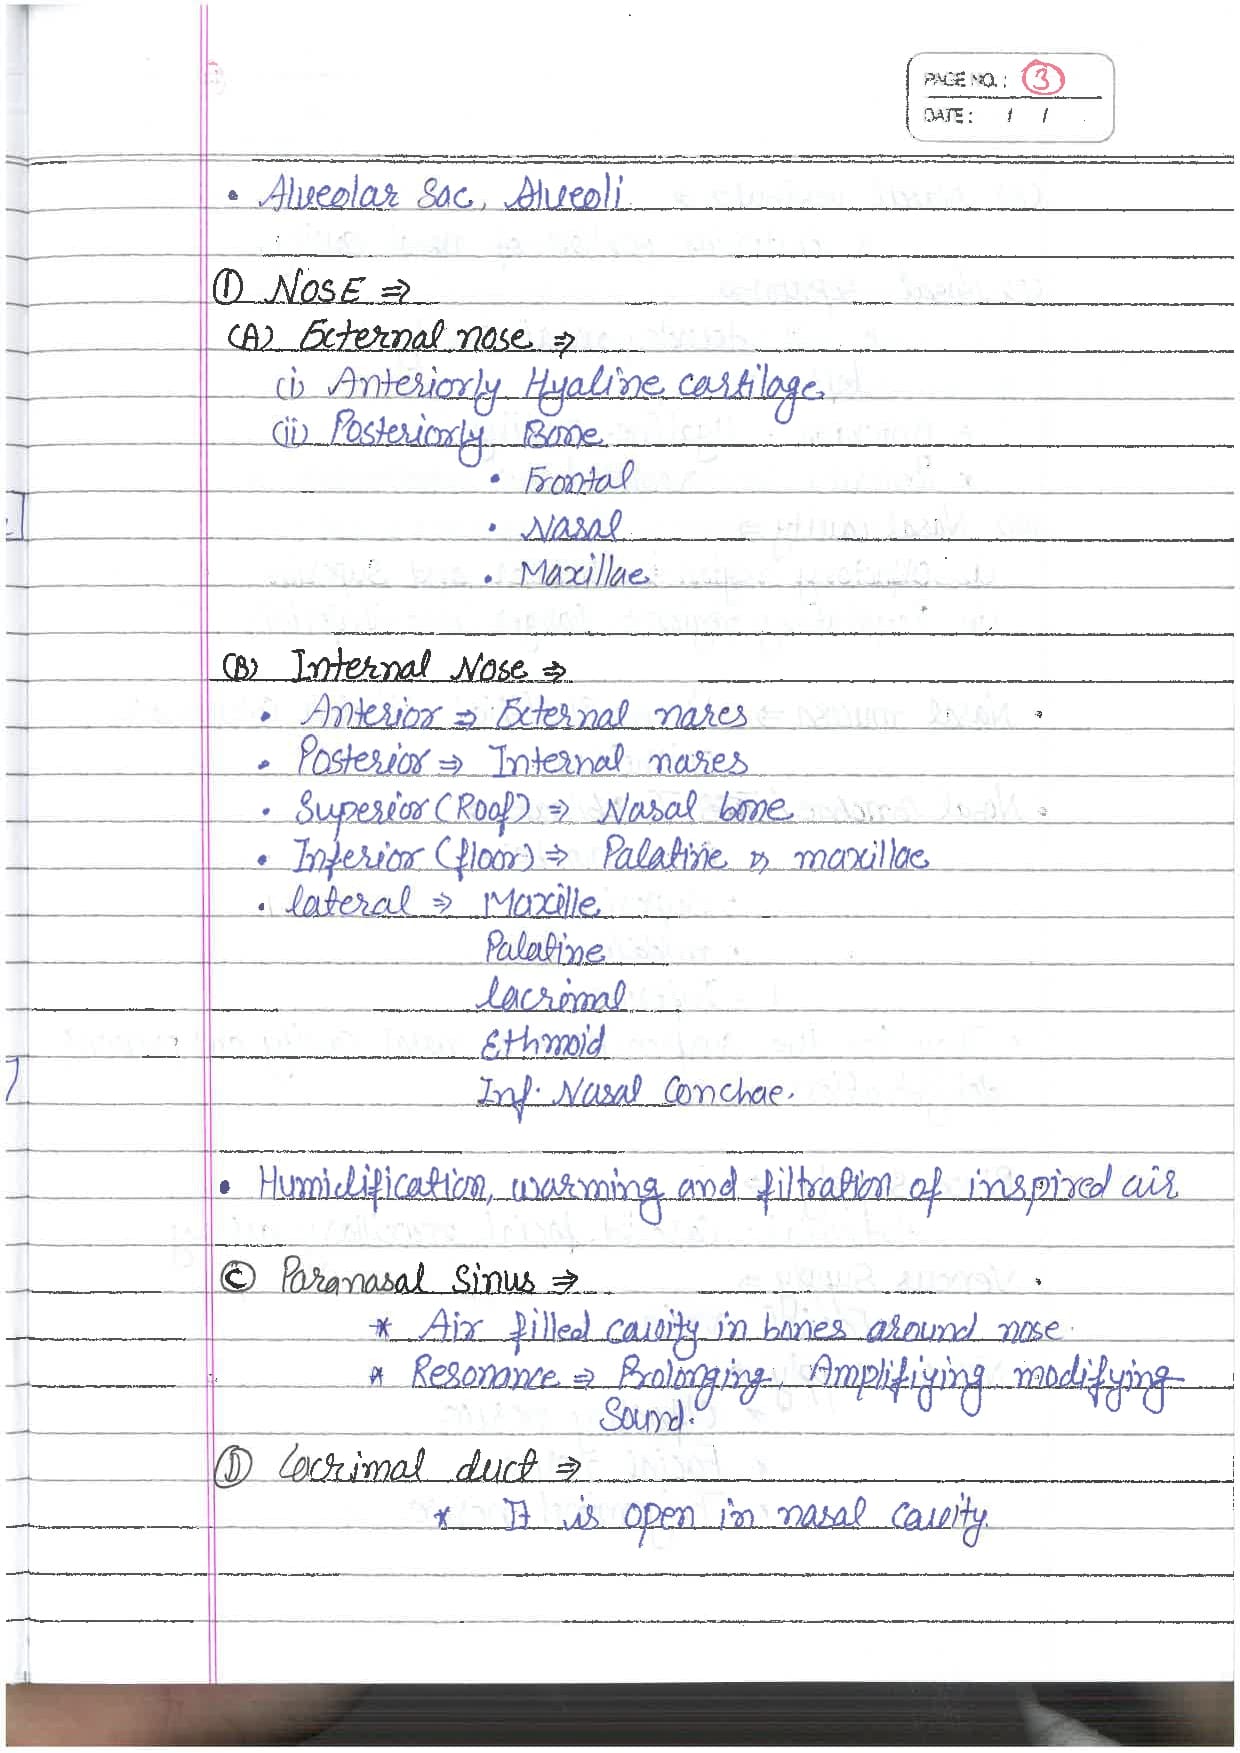 PAGE NO.: 3
DATE: / /
• Alveolar Sac, Alveoli
① NOSE ⇒
(A) External nose ⇒
(i) Anteriorly Hyaline cartilage
(ii) Posteriorly Bone
• Frontal
• Nasal
• Maxillae
(B) Internal Nose ⇒
• Anterior ⇒ External nares
• Posterior ⇒ Internal nares
• Superior (Roof) ⇒ Nasal bone
• Inferior (floor) ⇒ Palatine & maxillae
• lateral ⇒ Maxille
Palatine
lacrimal
Ethmoid
Inf. Nasal Conchae.
• Humidification, warming and filtration of inspired air
Ⓒ Paranasal Sinus ⇒
* Air filled cavity in bones around nose.
* Resonance ⇒ Prolonging, Amplifiying modifying
Sound.
Ⓓ Lacrimal duct ⇒
* It is open in nasal cavity.